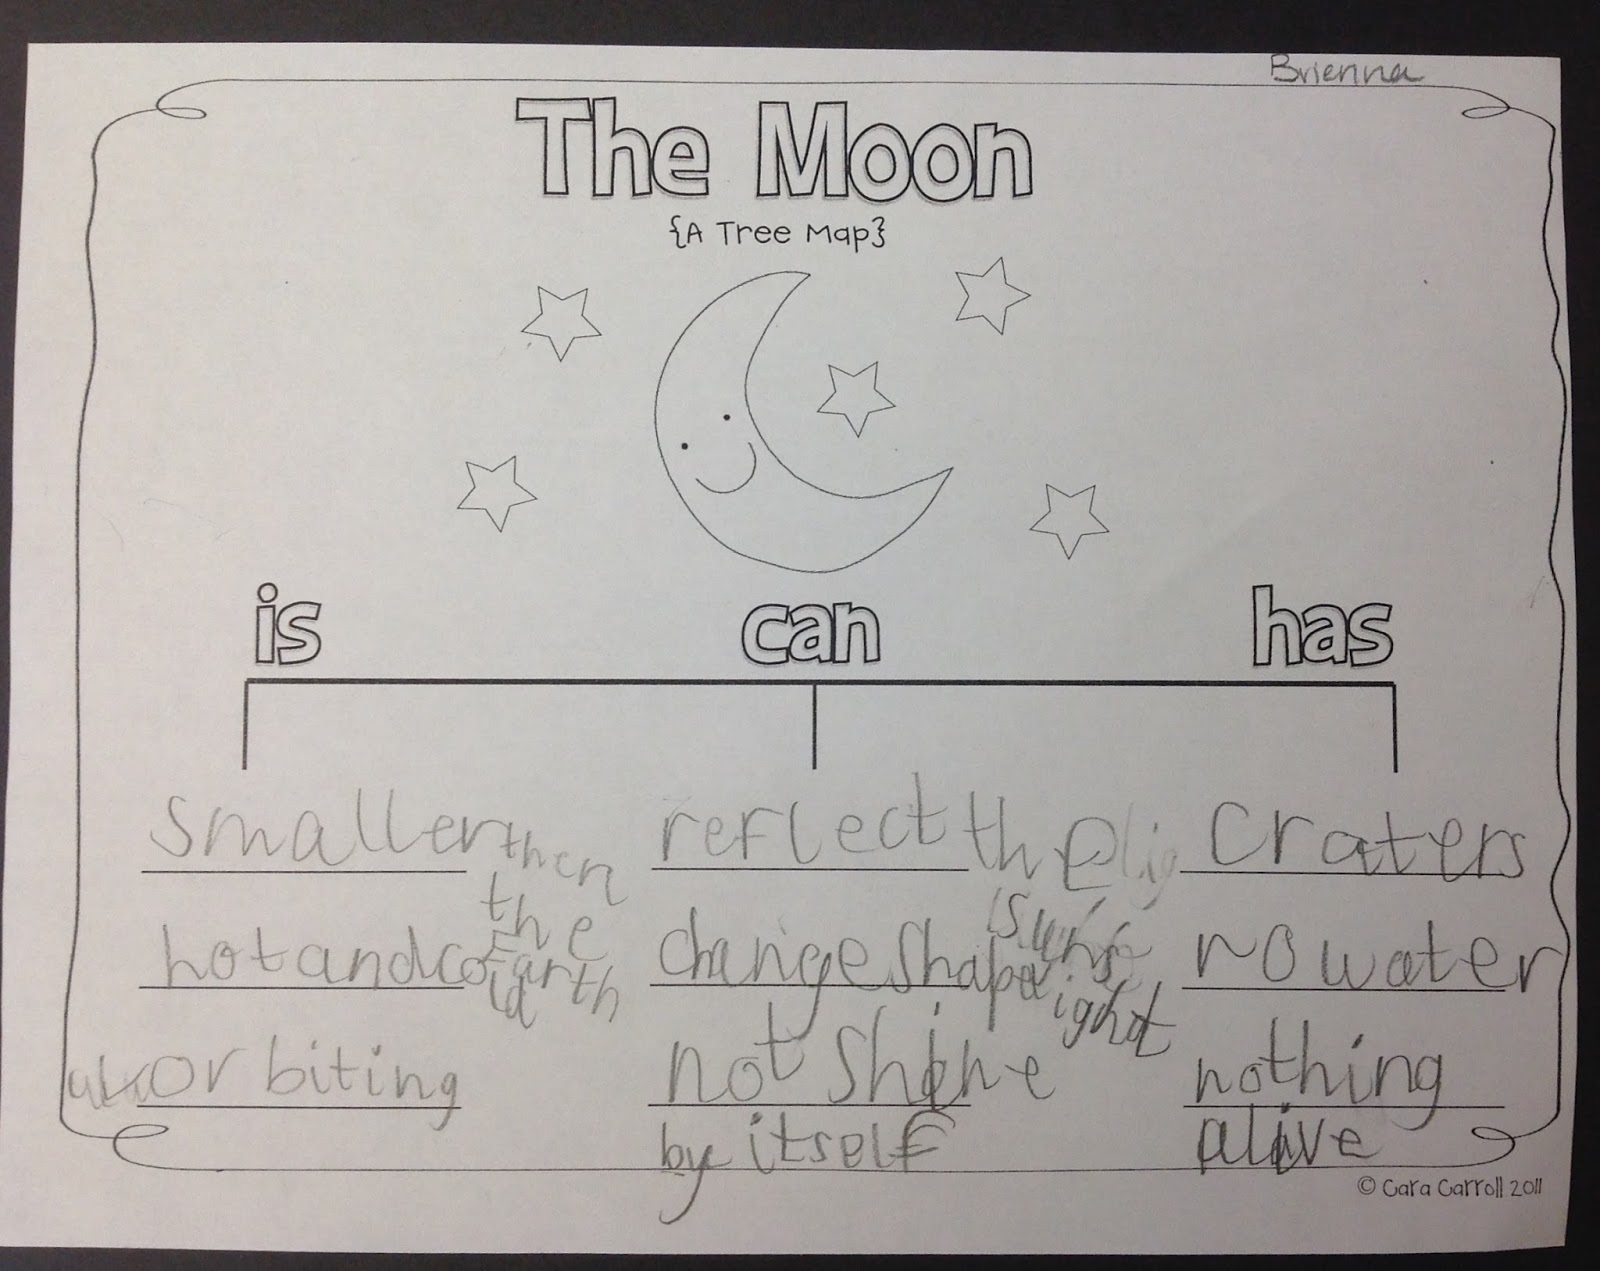 Brienna
The Moon
{A Tree Map}
is can has
smaller then the Earth
hot and cold
orbiting
reflect the suns light
change shape
not shine
by itself
craters
no water
nothing
alive
© Cara Carroll 2011